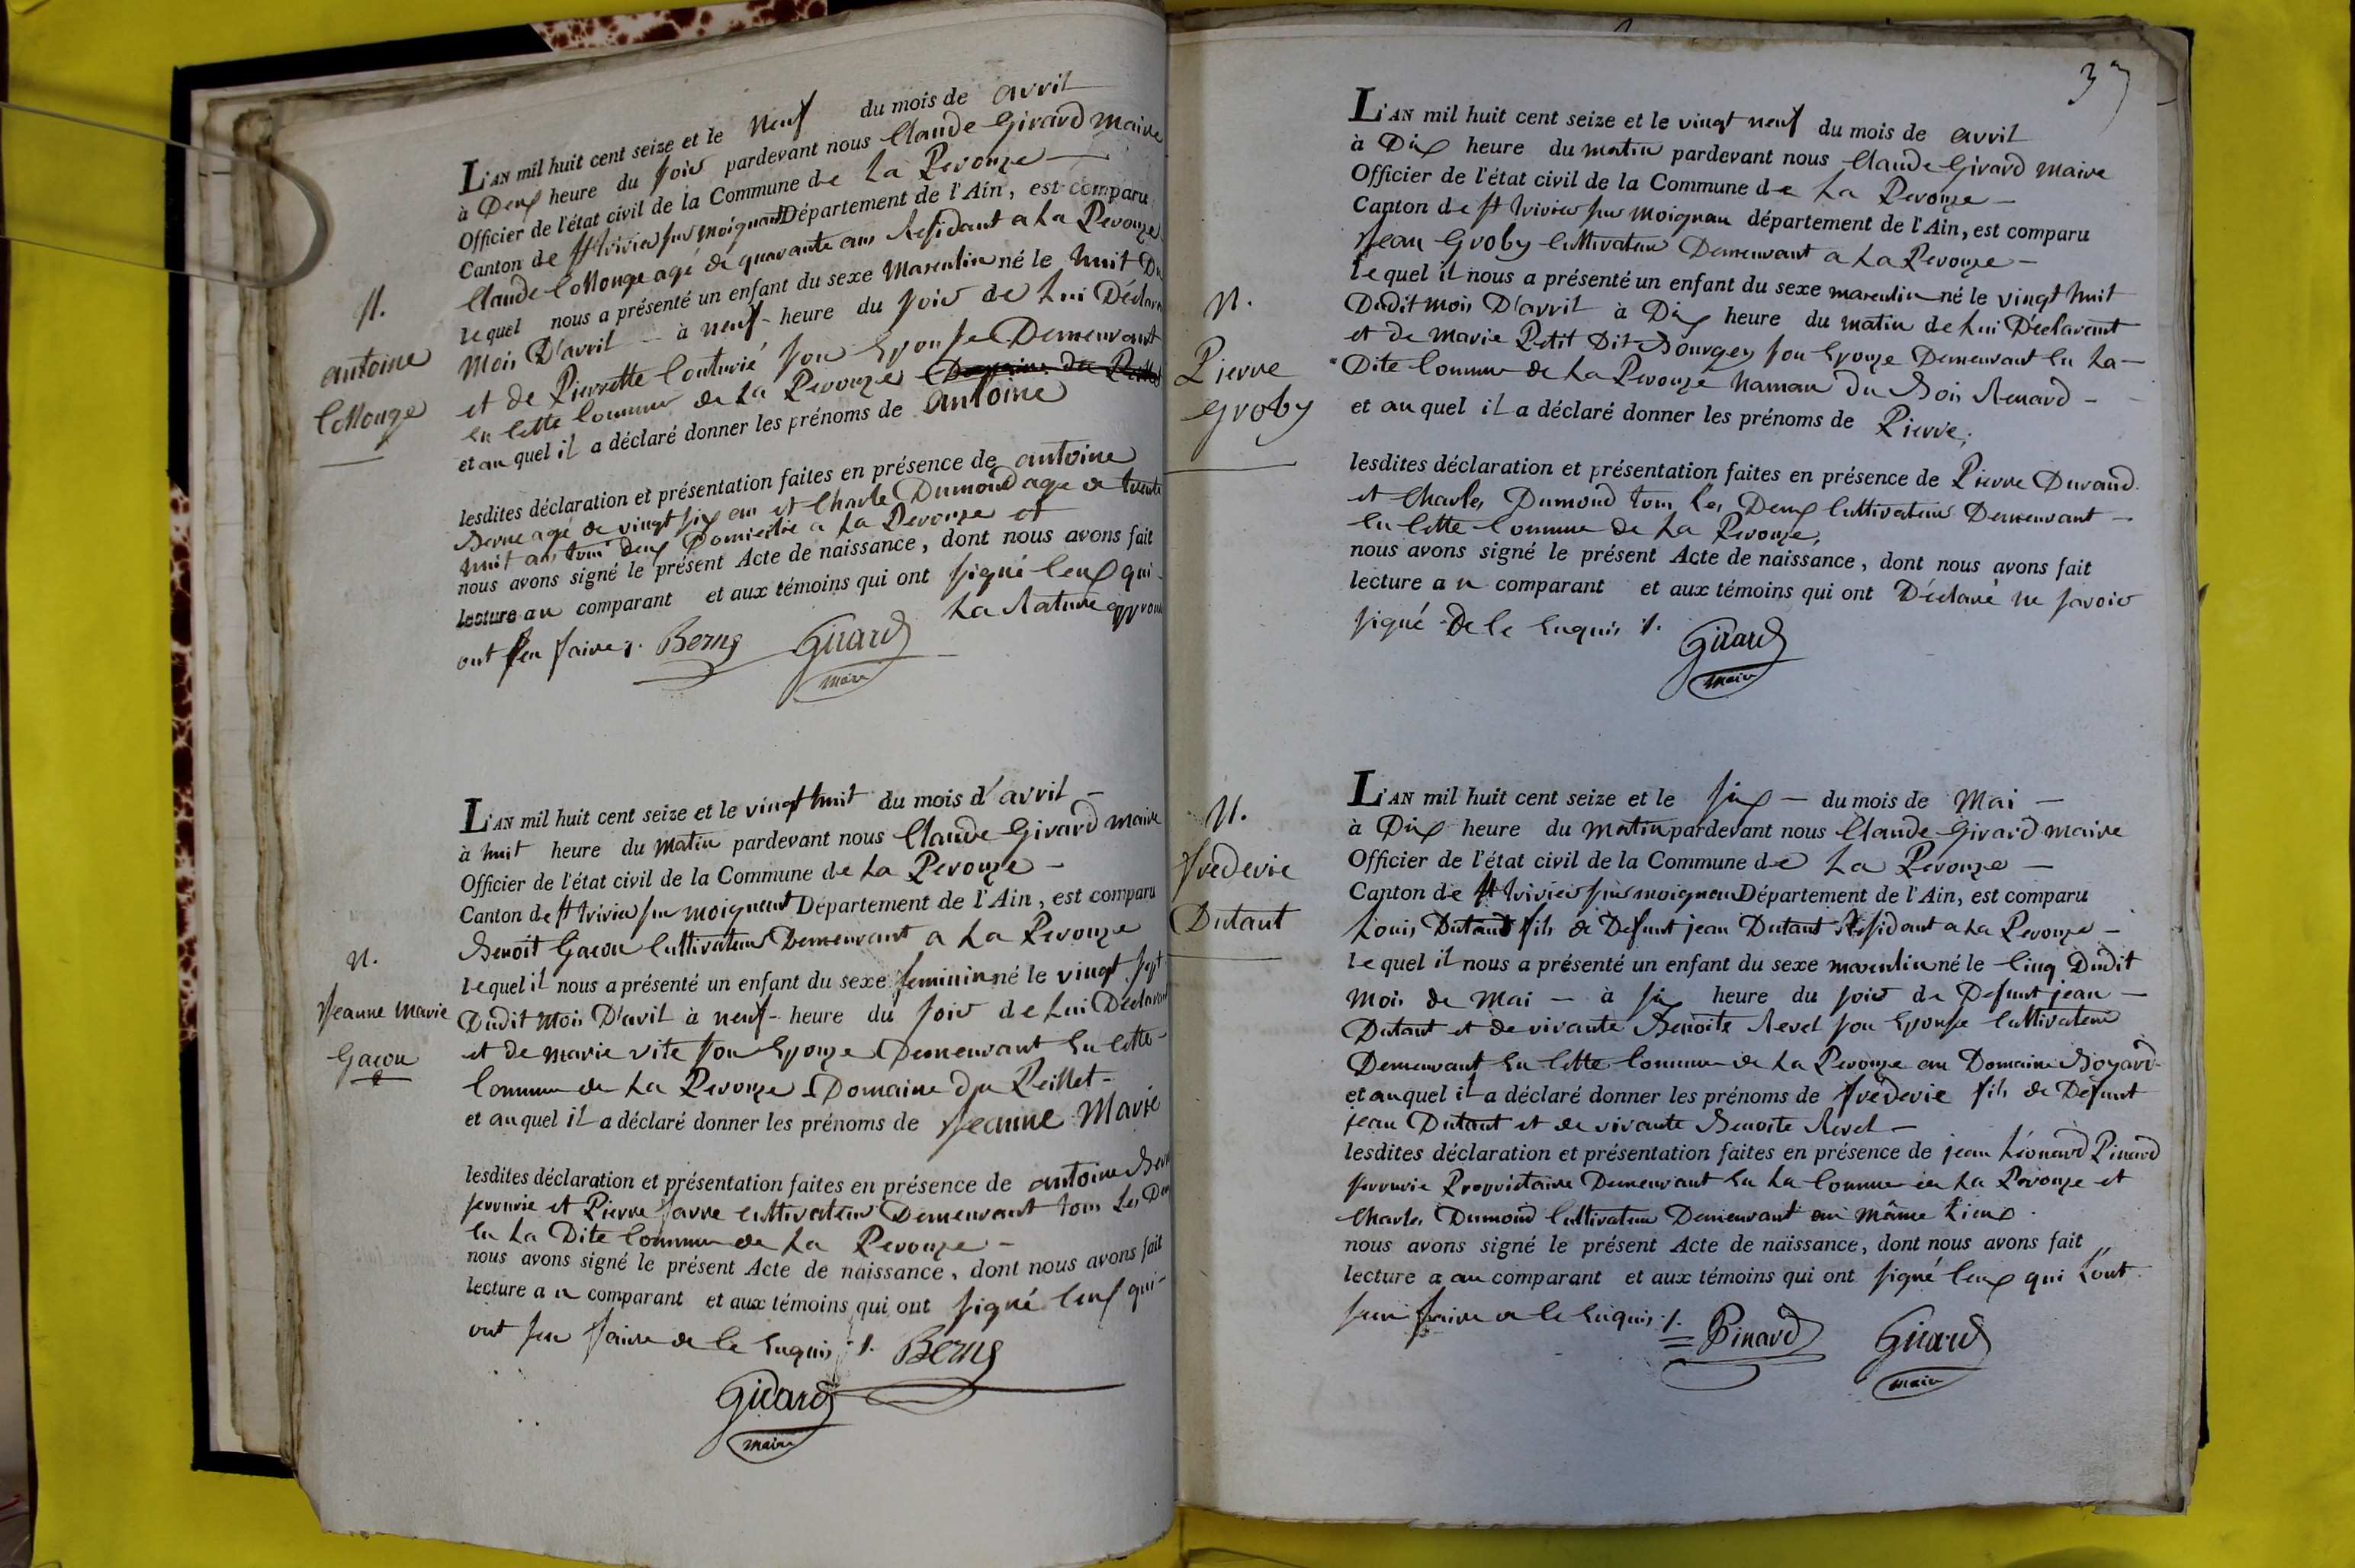 L'AN mil huit cent seize et le neuf du mois de avril
à Deux heure du soir pardevant nous Claude Girard maire
Officier de l'état civil de la Commune de La Perouze
Canton de St trivier sur moignant Département de l'Ain, est comparu
Claude Collonge agé de quarante ans Residant a La Perouze
lequel nous a présenté un enfant du sexe Masculin né le huit Du
Mois D'avril à neuf heure du soir de Lui Déclarant
et de Pierrette Couturié son Epouse Demeurant
En Cette Commune de La Perouze
et auquel il a déclaré donner les prénoms de Antoine
lesdites déclaration et présentation faites en présence de antoine
Berne agé de vingt six an et Charle Dumond age de trente
huit ans tous deux Domicilié a La Perouze et
nous avons signé le présent Acte de naissance, dont nous avons fait
lecture au comparant et aux témoins qui ont signé Ceux qui
ont seu faire ./. Berne Girard La Rature approuvé
maire
N.
antoine
Collonge
L'AN mil huit cent seize et le vingt huit du mois d'avril
à huit heure du Matin pardevant nous Claude Girard maire
Officier de l'état civil de la Commune de La Perouze
Canton de St trivier sur moignant Département de l'Ain, est comparu
Benoit Gacon Cultivateur Demeurant a La Perouze
lequel il nous a présenté un enfant du sexe feminin né le vingt sept
Dudit Mois D'avil à neuf heure du soir de Lui Déclarant
et de marie vite son Epouze Demeurant En Cette
Commune de La Perouze Domaine du Peillet
et auquel il a déclaré donner les prénoms de Jeanne Marie
lesdites déclaration et présentation faites en présence de antoine Berne
serrurie et Pierre favre cultivateur Demeurant tous Les Deux
En La Dite Commune de La Perouze
nous avons signé le présent Acte de naissance, dont nous avons fait
lecture au comparant et aux témoins qui ont signé Ceux qui
ont seu faire de Ce Enquis ./. Berne
Girard
maire
N.
Jeanne Marie
Gacon
37
L'AN mil huit cent seize et le vingt neuf du mois de avril
à Dix heure du matin pardevant nous Claude Girard maire
Officier de l'état civil de la Commune de La Perouze
Canton de St trivier sur Moignan département de l'Ain, est comparu
Jean Groby Cultivateur Demeurant a La Perouze
lequel il nous a présenté un enfant du sexe masculin né le vingt huit
Dudit mois D'avril à Dix heure du matin de Lui Déclarant
et de Marie Petit Dit Bourgey son Epouze Demeurant En La
Dite Commune de La Perouze hamau du Bois Renard
et auquel il a déclaré donner les prénoms de Pierre.
lesdites déclaration et présentation faites en présence de Pierre Durand
et Charles Dumond tous Les Deux Cultivateur Demeurant
En Cette Commune de La Perouze
nous avons signé le présent Acte de naissance, dont nous avons fait
lecture au comparant et aux témoins qui ont Déclaré ne savoir
signé De Ce Enquis ./. Girard
maire
N.
Pierre
Groby
L'AN mil huit cent seize et le six du mois de Mai
à Dix heure du Matin pardevant nous Claude Girard maire
Officier de l'état civil de la Commune de La Perouze
Canton de St trivier sur moignan Département de l'Ain, est comparu
Louis Dutant fils de Defunt jean Dutant Residant a La Perouze
lequel il nous a présenté un enfant du sexe masculin né le Cinq Dudit
mois de Mai à six heure du soir de Defunt jean
Dutant et de vivante Benoite Revel son Epouse Cultivateur
Demeurant En Cette Commune de La Perouze au Domaine Boyard
et auquel il a déclaré donner les prénoms de frederie fils de Defunt
jean Dutant et de vivante Benoite Revel
lesdites déclaration et présentation faites en présence de jean Léonard Pinard
serrurie Propriétaire Demeurant En La Commune de La Perouze et
Charles Dumond Cultivateur Demeurant au Même Lieux.
nous avons signé le présent Acte de naissance, dont nous avons fait
lecture a au comparant et aux témoins qui ont signé Ceux qui Lont
seu faire de Ce Enquis ./. Pinard Girard
maire
N.
frederie
Dutant